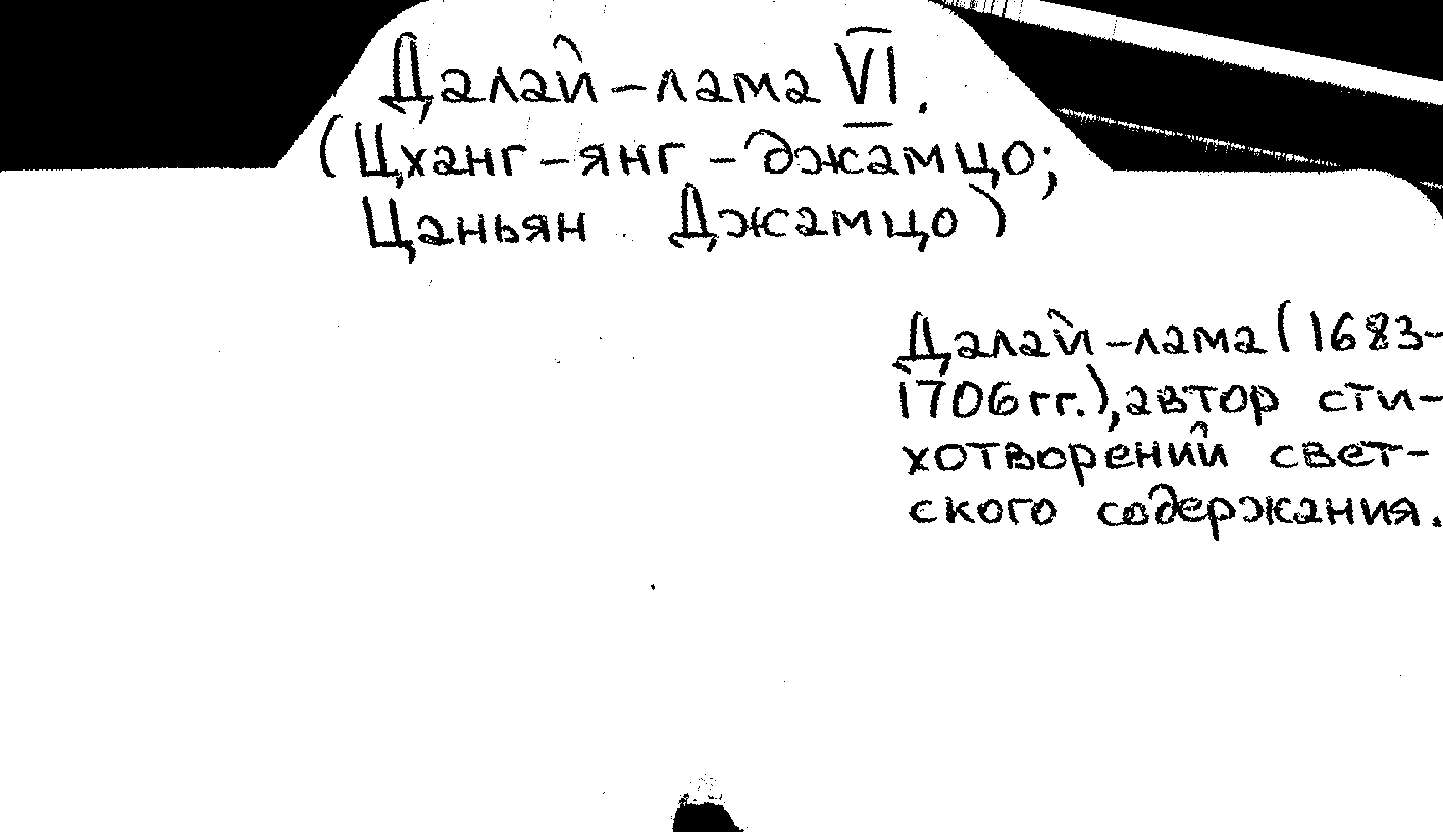 Далай-лама VI.
(Цханг-янг-джамцо;
Цаньян Джамцо)
Далай-лама (1683-
1706гг.), автор сти-
хотворений свет-
ского содержания.